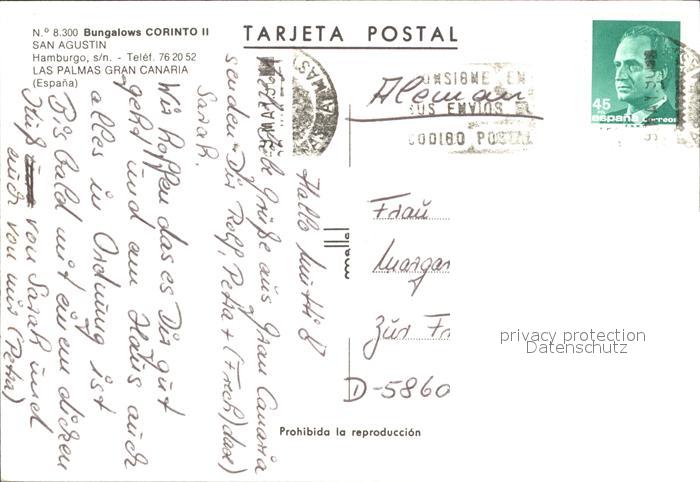 N.º 8.300 Bungalows CORINTO II
SAN AGUSTIN
Hamburgo, s/n. - Teléf. 76 20 52
LAS PALMAS GRAN CANARIA
(España)
TARJETA POSTAL
CONSIGNE EN
SUS ENVIOS
CODIGO POSTAL
45
españa correos
Aleman
Hallo Mutti!
Grüße aus Gran Canaria
senden Dir Rolf, Petra + (Frech)dax)
Sarah.
Wir hoffen das es Dir gut
geht und am Haus auch
alles in Ordnung ist
Bis bald mit einem dicken
von Sarah und
auch von mir (Petra)
Frau
Margar
Zur Fr
D-5860
Prohibida la reproducción
privacy protection
Datenschutz